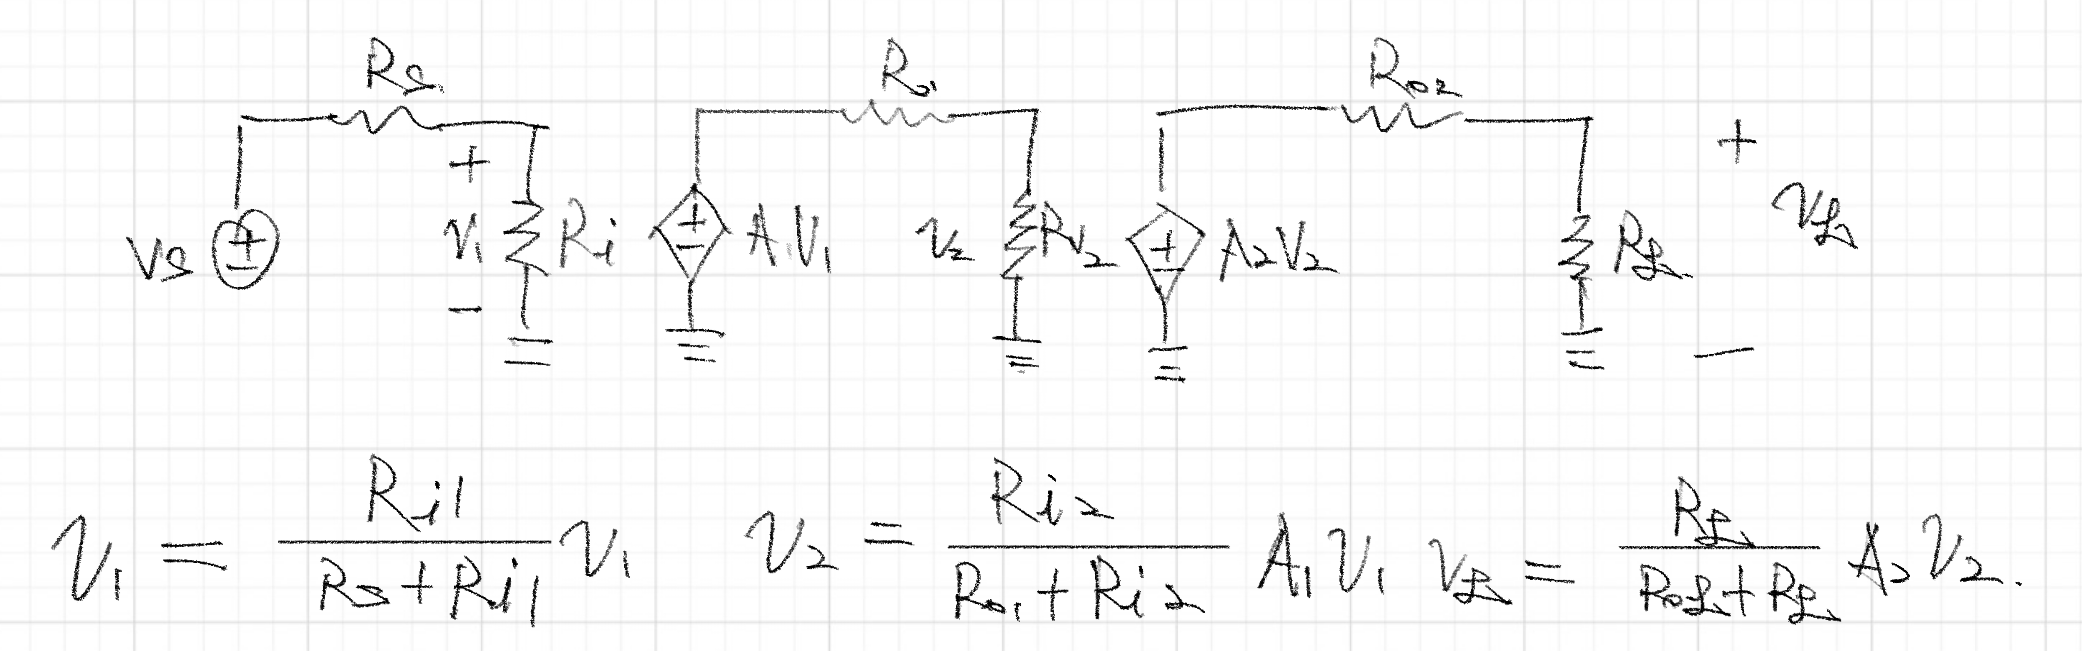 Rs Ro1 Ro2
+ +
vs + − v1 Ri + − A1V1 v2 Rv2 + − A2V2 RL vL
− −
v1 = Ri1 / (Rs + Ri1) v1 v2 = Ri2 / (Ro1 + Ri2) A1 v1 vL = RL / (RoL + RL) A2 v2.